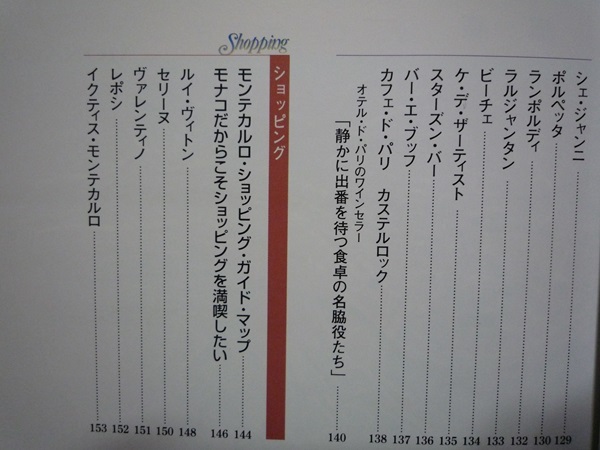 シェ・ジャンニ 129
ポルペッタ 130
ランポルディ 132
ラルジャンタン 133
ビーチェ 134
ケ・デ・ザーティスト 135
スターズン・バー 136
バー・エ・ブッフ 137
カフェ・ド・パリ カステルロック 138
オテル・ド・パリのワインセラー
「静かに出番を待つ食卓の名脇役たち」 140
Shopping
ショッピング
モンテカルロ・ショッピング・ガイド・マップ 144
モナコだからこそショッピングを満喫したい 146
ルイ・ヴィトン 148
セリーヌ 150
ヴァレンティノ 151
レポシ 152
イクティス・モンテカルロ 153